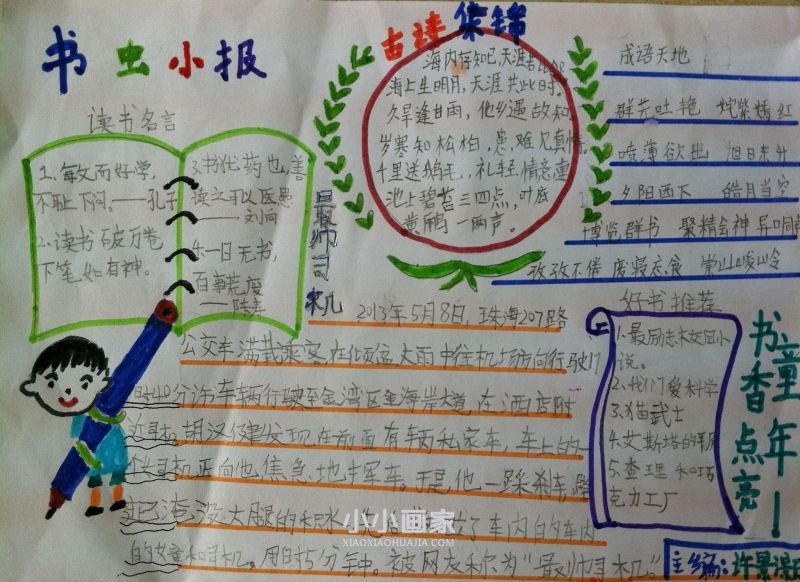 书虫小报
读书名言
1.敏而好学,
不耻下问。——孔子
2.读书破万卷
下笔如有神。
3.书犹药也,善
读之可以医愚
——刘向
4.一日无书,
百事荒废
——陈寿
古诗集锦
海内存知己,天涯若比邻
海上生明月,天涯共此时。
久旱逢甘雨,他乡遇故知
岁寒知松柏,患难见真情
千里送鹅毛,礼轻情意重
池上碧苔三四点,叶底
黄鹂一两声。
成语天地
群芳吐艳 姹紫嫣红
喷薄欲出 旭日东升
夕阳西下 皓月当空
博览群书 聚精会神 异口同
孜孜不倦 废寝忘食 崇山峻岭
最帅司机
2013年5月8日,珠海207路
公交车满载乘客在倾盆大雨中往机场方向行驶17
时40分许,车辆行驶至金湾区金海岸大道,在酒店附
司机胡汉健发现在前面有辆私家车,车上的
司机正向他焦急地挥车。于是他一踩刹车,踏
淹没大腿的积水
了车内的车内
的女童和司机。用时5分钟。被网友称为“最帅司机”
好书推荐
1.最励志校园小
说。
2.我们爱科学
3.猫武士
4.艾斯塔的
5.查理和巧
克力工厂
书香点亮
童年!
主编:许
小小画家
XIAOXIAOHUAJIA.COM